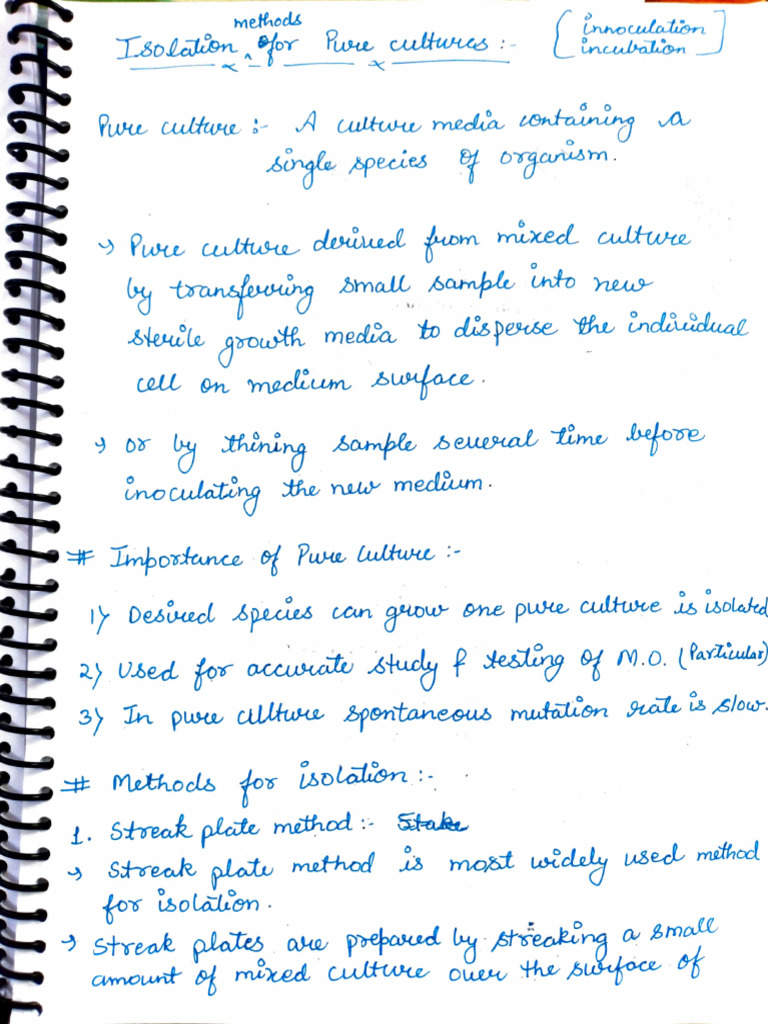 Isolation methods for Pure cultures :- [innoculation
incubation]
Pure culture :- A culture media containing a
single species of organism.
→ Pure culture derived from mixed culture
by transferring small sample into new
sterile growth media to disperse the individual
cell on medium surface.
→ or by thining sample several time before
inoculating the new medium.
# Importance of Pure Culture :-
1) Desired species can grow one pure culture is isolated
2) Used for accurate study & testing of M.O. (Particular)
3) In pure culture spontaneous mutation rate is slow.
# Methods for isolation :-
1. Streak plate method :-
→ Streak plate method is most widely used method
for isolation.
→ Streak plates are prepared by streaking a small
amount of mixed culture over the surface of